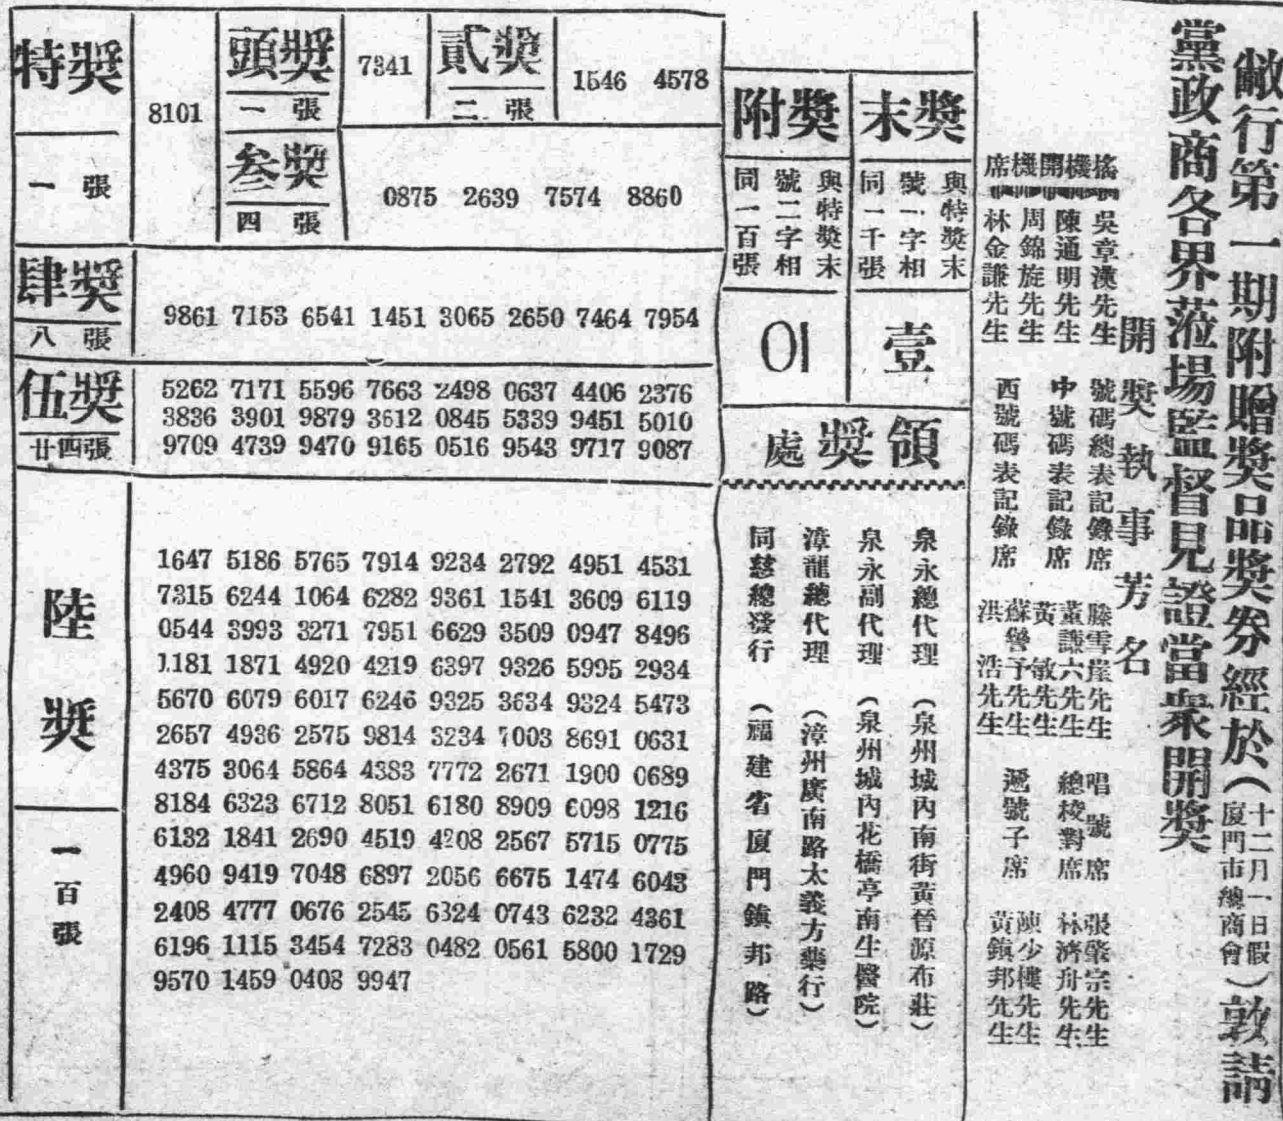 敝行第一期附贈獎品獎券經於(十二月一日假廈門市總商會)敦請
黨政商各界蒞場監督見證當衆開獎
開獎執事芳名
搖機席 吳章漢先生
開機席 陳通明先生
周錦旋先生
林金謙先生
號碼總表記錄席 滕雪崖先生
中號碼表記錄席 董謙六先生
黃敏先生
西號碼表記錄席 蘇警予先生
洪浩先生
唱號席 張肇宗先生
總校對席 林濟舟先生
遞號子席 陳少樓先生
黃鎮邦先生
末獎
與特獎末
號一字相
同一千張
壹
附獎
與特獎末
號二字相
同一百張
01
領獎處
泉永總代理 (泉州城內南街黃晉源布莊)
泉永副代理 (泉州城內花橋亭南生醫院)
漳龍總代理 (漳州廣南路太義方藥行)
同慈總發行 (福建省廈門鎮邦路)
特獎
一張
8101
頭獎
一張
7341
貳獎
二張
1546 4578
叁獎
四張
0875 2639 7574 8860
肆獎
八張
9861 7153 6541 1451 3065 2650 7464 7954
伍獎
廿四張
5262 7171 5596 7663 2498 0637 4406 2376
3836 3901 9879 3612 0845 5339 9451 5010
9709 4739 9470 9165 0516 9543 9717 9087
陸獎
一百張
1647 5186 5765 7914 9234 2792 4951 4531
7315 6244 1064 6282 9361 1541 3609 6119
0544 3993 3271 7951 6629 3509 0947 8496
1181 1871 4920 4219 6397 9326 5995 2934
5670 6079 6017 6246 9325 3634 9324 5473
2657 4936 2575 9814 3234 7003 8691 0631
4375 3064 5864 4383 7772 2671 1900 0689
8184 6323 6712 8051 6180 8909 6098 1216
6132 1841 2690 4519 4208 2567 5715 0775
4960 9419 7048 6897 2056 6675 1474 6043
2408 4777 0676 2545 6324 0743 6232 4361
6196 1115 3454 7283 0482 0561 5800 1729
9570 1459 0408 9947